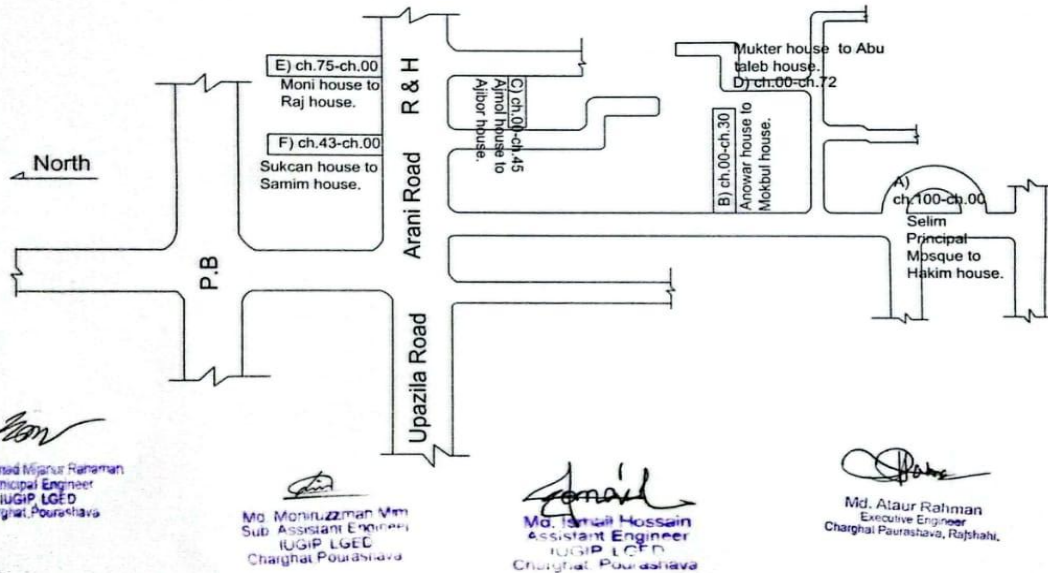 E) ch.75-ch.00
Moni house to
Raj house.
F) ch.43-ch.00
Sukcan house to
Samim house.
North
P.B
R & H
Arani Road
Upazila Road
C) ch.00-ch.45
Ajmol house to
Ajibor house.
Mukter house to Abu
taleb house.
D) ch.00-ch.72
B) ch.00-ch.30
Anowar house to
Mokbul house.
A)
ch.100-ch.00
Selim
Principal
Mosque to
Hakim house.
Mijanur Rahaman
Engineer
IUGIP, LGED
Pourashava
Md. Moniruzzman
Sub Assistant Engineer
IUGIP LGED
Charghat Pourashava
Md. Ismail Hossain
Assistant Engineer
IUGIP LGED
Charghat Pourashava
Md. Ataur Rahman
Executive Engineer
Charghat Paurashava, Rajshahi.